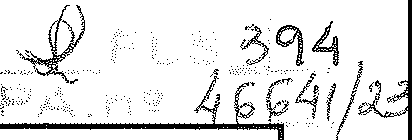 FLS 394
PA. nº 46641/23